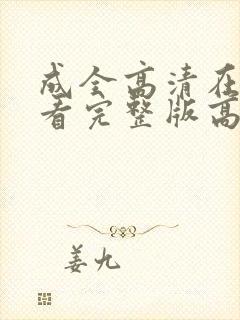 成全高清在
看完整版高
姜九